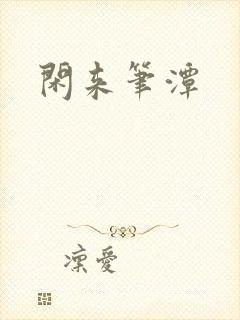 閑来筆潭
凜愛